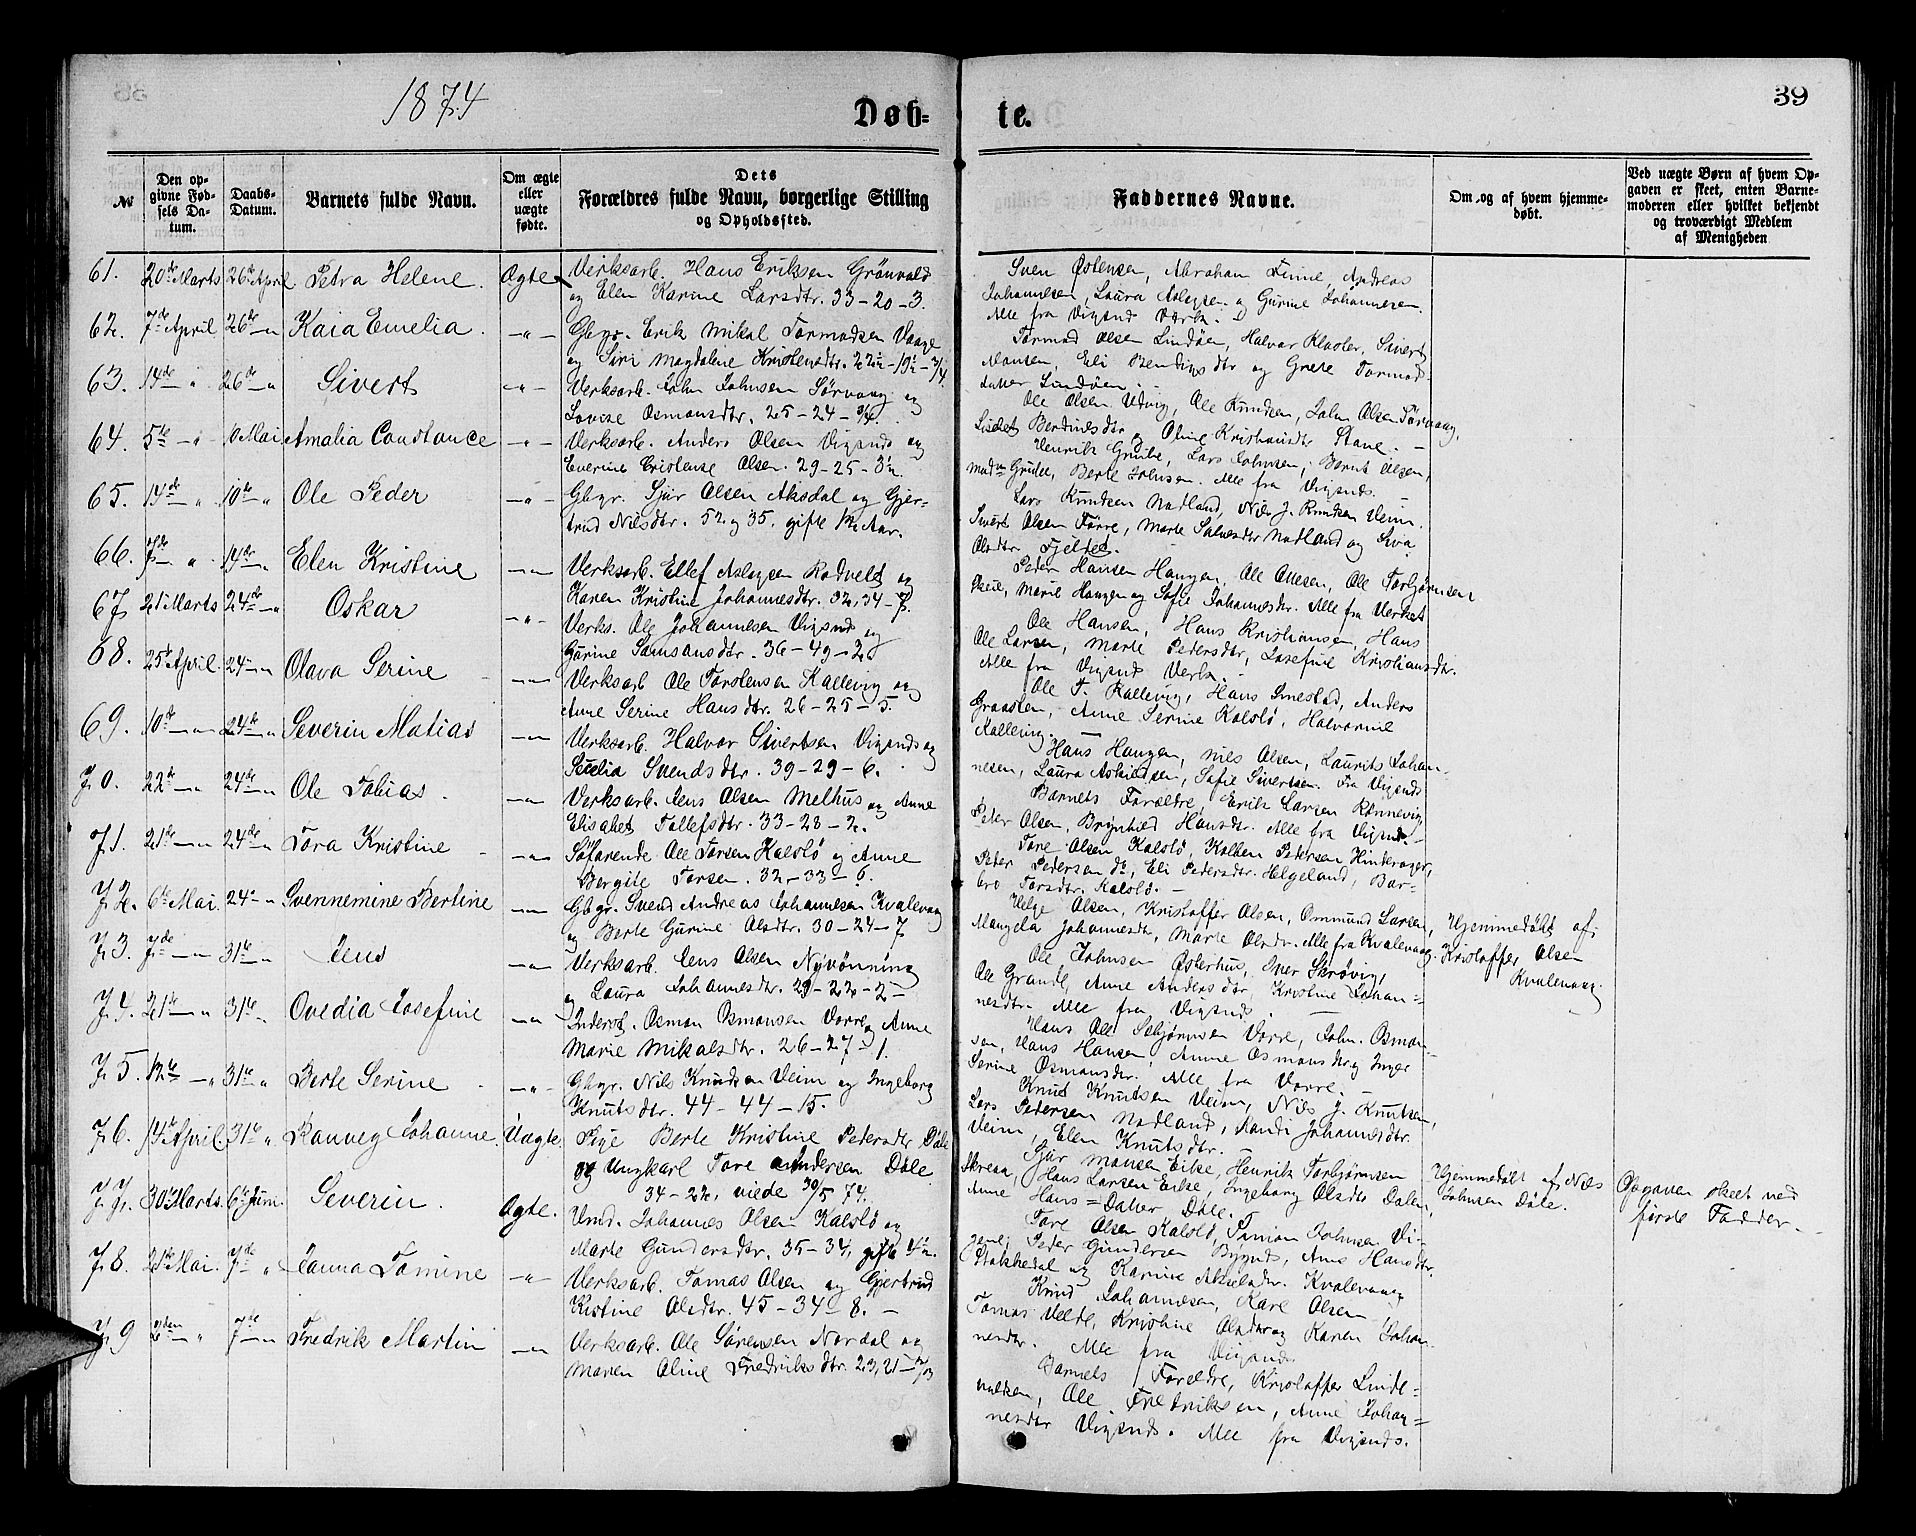 38
1874
Døb=
te.
39
№
Den op-
givne Fød-
sels Da-
tum.
Daabs-
Datum.
Barnets fulde Navn.
Om ægte
eller
uægte
fødte.
Dets
Forældres fulde Navn, borgerlige Stilling
og Opholdssted.
Faddernes Navne.
Om og af hvem hjemme-
døbt.
Ved uægte Børn af hvem Op-
gaven er skeet, enten Barne-
moderen eller hvilket bekjendt
og troværdigt Medlem
af Menigheden
61. 20de Marts 26de April Petra Helene. Ægte
Verksarb. Hans Eriksen Grönvold
og Elen Karine Larsdtr. 33-20-3.
Sven Østensen, Abraham Finne, Andreas
Johannesen, Laura Aslagsen og Gurine Johannesen.
Alle fra Vigsnæs Værk.
62. 7de April 26de -"- Kaia Emelia. -"-
Gbgr. Erik Mikal Tormodsen Vaage
og Siri Magdalene Kristensdtr. 22½-19½-3/4.
Tormod Olsen Lindöen, Halvor Sivert
Mansen, Eli og Grete Tormods-
datter Lindöen.
63. 14de " 26de -"- Sivert -"-
Verksarb. John Johnsen Sørvaag og
Lovise Osmonsdtr. 25-24-3/4.
Ole Olsen Udvig, Ole Knudsen, John Olsen Sørvaag,
Kristiansdtr Stane.
64. 5te -"- Mai Amalia Constance -"-
Verksarb. Anders Olsen Vigsnæs og
Everine Cristense Olsen. 29-25-3½.
Henrik Grube, Lars Johnsen, Bernt Olsen,
Grube, Berte Johnsen. Alle fra Vigsnæs.
65. 14de " 10de -"- Ole Peder -"-
Gbgr. Sjur Olsen Aksdal og Gjer-
trud Nilsdtr. 52 og 35. gifte 12 Aar.
Lars Knudsen Nodland, Nils J. Knudsen Veim.
Sivert Olsen Førre, Marte Nodland og Siva
Olsdtr. Fjeldet.
66. 7de " 14de -"- Elen Kristine -"-
Verksarb. Ellef Aslagsen Rodvelt og
Karen Kristine Johannesdtr. 32, 34-7.
Peder Hansen Haugen, Ole Ottesen, Ole Torbjørnsen
Skeie, Marie Haugen og Sofie Johannesdtr. Alle fra Verket
67. 21 Marts 24de -"- Oskar -"-
Verks. Ole Johannesen Vigsnæs og
Gurine Samsonsdtr. 36-49-2.
Ole Hansen, Hans Kristiansen, Hans
Ole Larsen, Marte Pedersdtr, Josefine Kristiansdtr.
Alle fra Vigsnæs Verk.
68. 25de April 24 -"- Olava Serine -"-
Verksarb Ole Torstensen Kallevig og
Anne Serine Hansdtr. 26-25-5.
Ole T. Kallevig, Hans Imestad, Anders
Graasten, Anne Serine Kolslö, Halvorine
Kallevig.
69. 10de -"- 24de -"- Severin Matias -"-
Verksarb. Halvor Sivertsen Vigsnæs og
Secelia Svendsdtr. 39-29-6.
Hans Haugen, Nils Olsen, Laurits Johan-
nesen, Laura Sofie Sivertsen. Fra Vigsnæs
70. 22de -"- 24de -"- Ole Tobias. -"-
Verksarb. Jens Olsen Melhus og Anne
Elisabet Tollefsdtr. 33-28-2.
Barnets Forældre, Erik Larsen Rønnevig,
Peter Olsen, Brynhild Hansdtr. Alle fra Vigsnæs.
71. 21de -"- 24de -"- Tora Kristine -"-
Søfarende Ole Torsen Kalslö og Anne
Bergite Torsen. 32-33-6.
Tore Olsen Kalslö, Kolben Pedersen Hinderager,
Peder Pedersen do, Eli Pedersdtr. Helgeland, Bar-
bro Torsdtr. Kalslö.
72. 6te Mai. 24 -"- Svennemine Bertine -"-
Gbgr. Svend Andreas Johannesen Kvalevaag
og Berte Gurine Olsdtr. 30-24-7
Helge Olsen, Kristoffer Olsen, Osmund Larsen,
Mangela Johannesdtr, Marte Olsdtr. Alle fra Kvalevaag.
Hjemmedøbt af
Kristoffer Olsen
Kvalevaag.
73. 7de -"- 31te -"- Jens -"-
Verksarb. Jens Olsen Nyvönning
og Laura Johannesdtr. 29-22-2-
Ole Johnsen Østerhus, Iver Skrøvig,
Ole Grande, Anne Andersdtr, Kristine Johan-
nesdtr. Alle fra Vigsnæs.
74. 21de -"- 31te -"- Ovedia Josefine -"-
Inderst. Osmon Osmonsen Vorre og Anne
Marie Mikalsdtr. 26-27-1.
Hans Ole Vorre, John Osmon-
sen, Hans Hansen, Anne Osmonsdtr og Inger
Serine Osmonsdtr. Alle fra Vorre.
75. 12te -"- 31te " Berte Serine -"-
Gbgr. Nils Knudsen Veim og Ingeborg
Knutsdtr. 44-44-15.
Knud Knutsen Veim, Nils J. Knutsen,
Lars Pedersen Nodland, Mandi Johannesdtr.
Veim, Elen Knutsdtr.
76. 14de April. 31te " Ranveg Johanne. Uægte
Pige Berte Kristine Pedersdtr Døle
og Ungkarl Tore Andersen Døle.
34-22, viede 30/5 74.
Sjur Monsen Eike, Henrik Torbjørnsen
Skreaa, Hans Larsen Eike, Ingeborg Olsdtr Dalen,
Anne Hans=Datter Døle.
Hjemmedøbt af Nils
Johnsen Døle.
Opgaven skeet ved
første Fadder.
77. 30de Marts. 6te Juni. Severin. Ægte.
Umd. Johannes Olsen Kalslö og
Marte Gundersdtr. 35-34, gifte 4½.
Tore Olsen Kalslö, Simon Johnsen Vi-
gene, Peder Gundersen Bygnes, Ane Hansdtr.
Stakkedal og Karine Akselsdtr. Kvalevaag
78. 21de Mai. 7de " Janna Tomine -"-
Verksarb. Tomas Olsen og Gjertrud
Kistine Olsdtr. 45-34-8. -
Knud Johannesen, Kare Olsen
Tomas Velde, Kristine Olsdtr og Karen Johan-
nesdtr. Alle fra Vigsnæs
79 2den " 7de -"- Fredrik Martin -"-
Verksarb. Ole Sørensen Nordal og
Maren Oline Fredriksdtr. 23, 21-
Barnets Forældre, Kristoffer Linde-
nulsen, Ole Fredriksen, Anne Johan-
nesdtr Vigsnæs. Alle fra Vigsnæs.